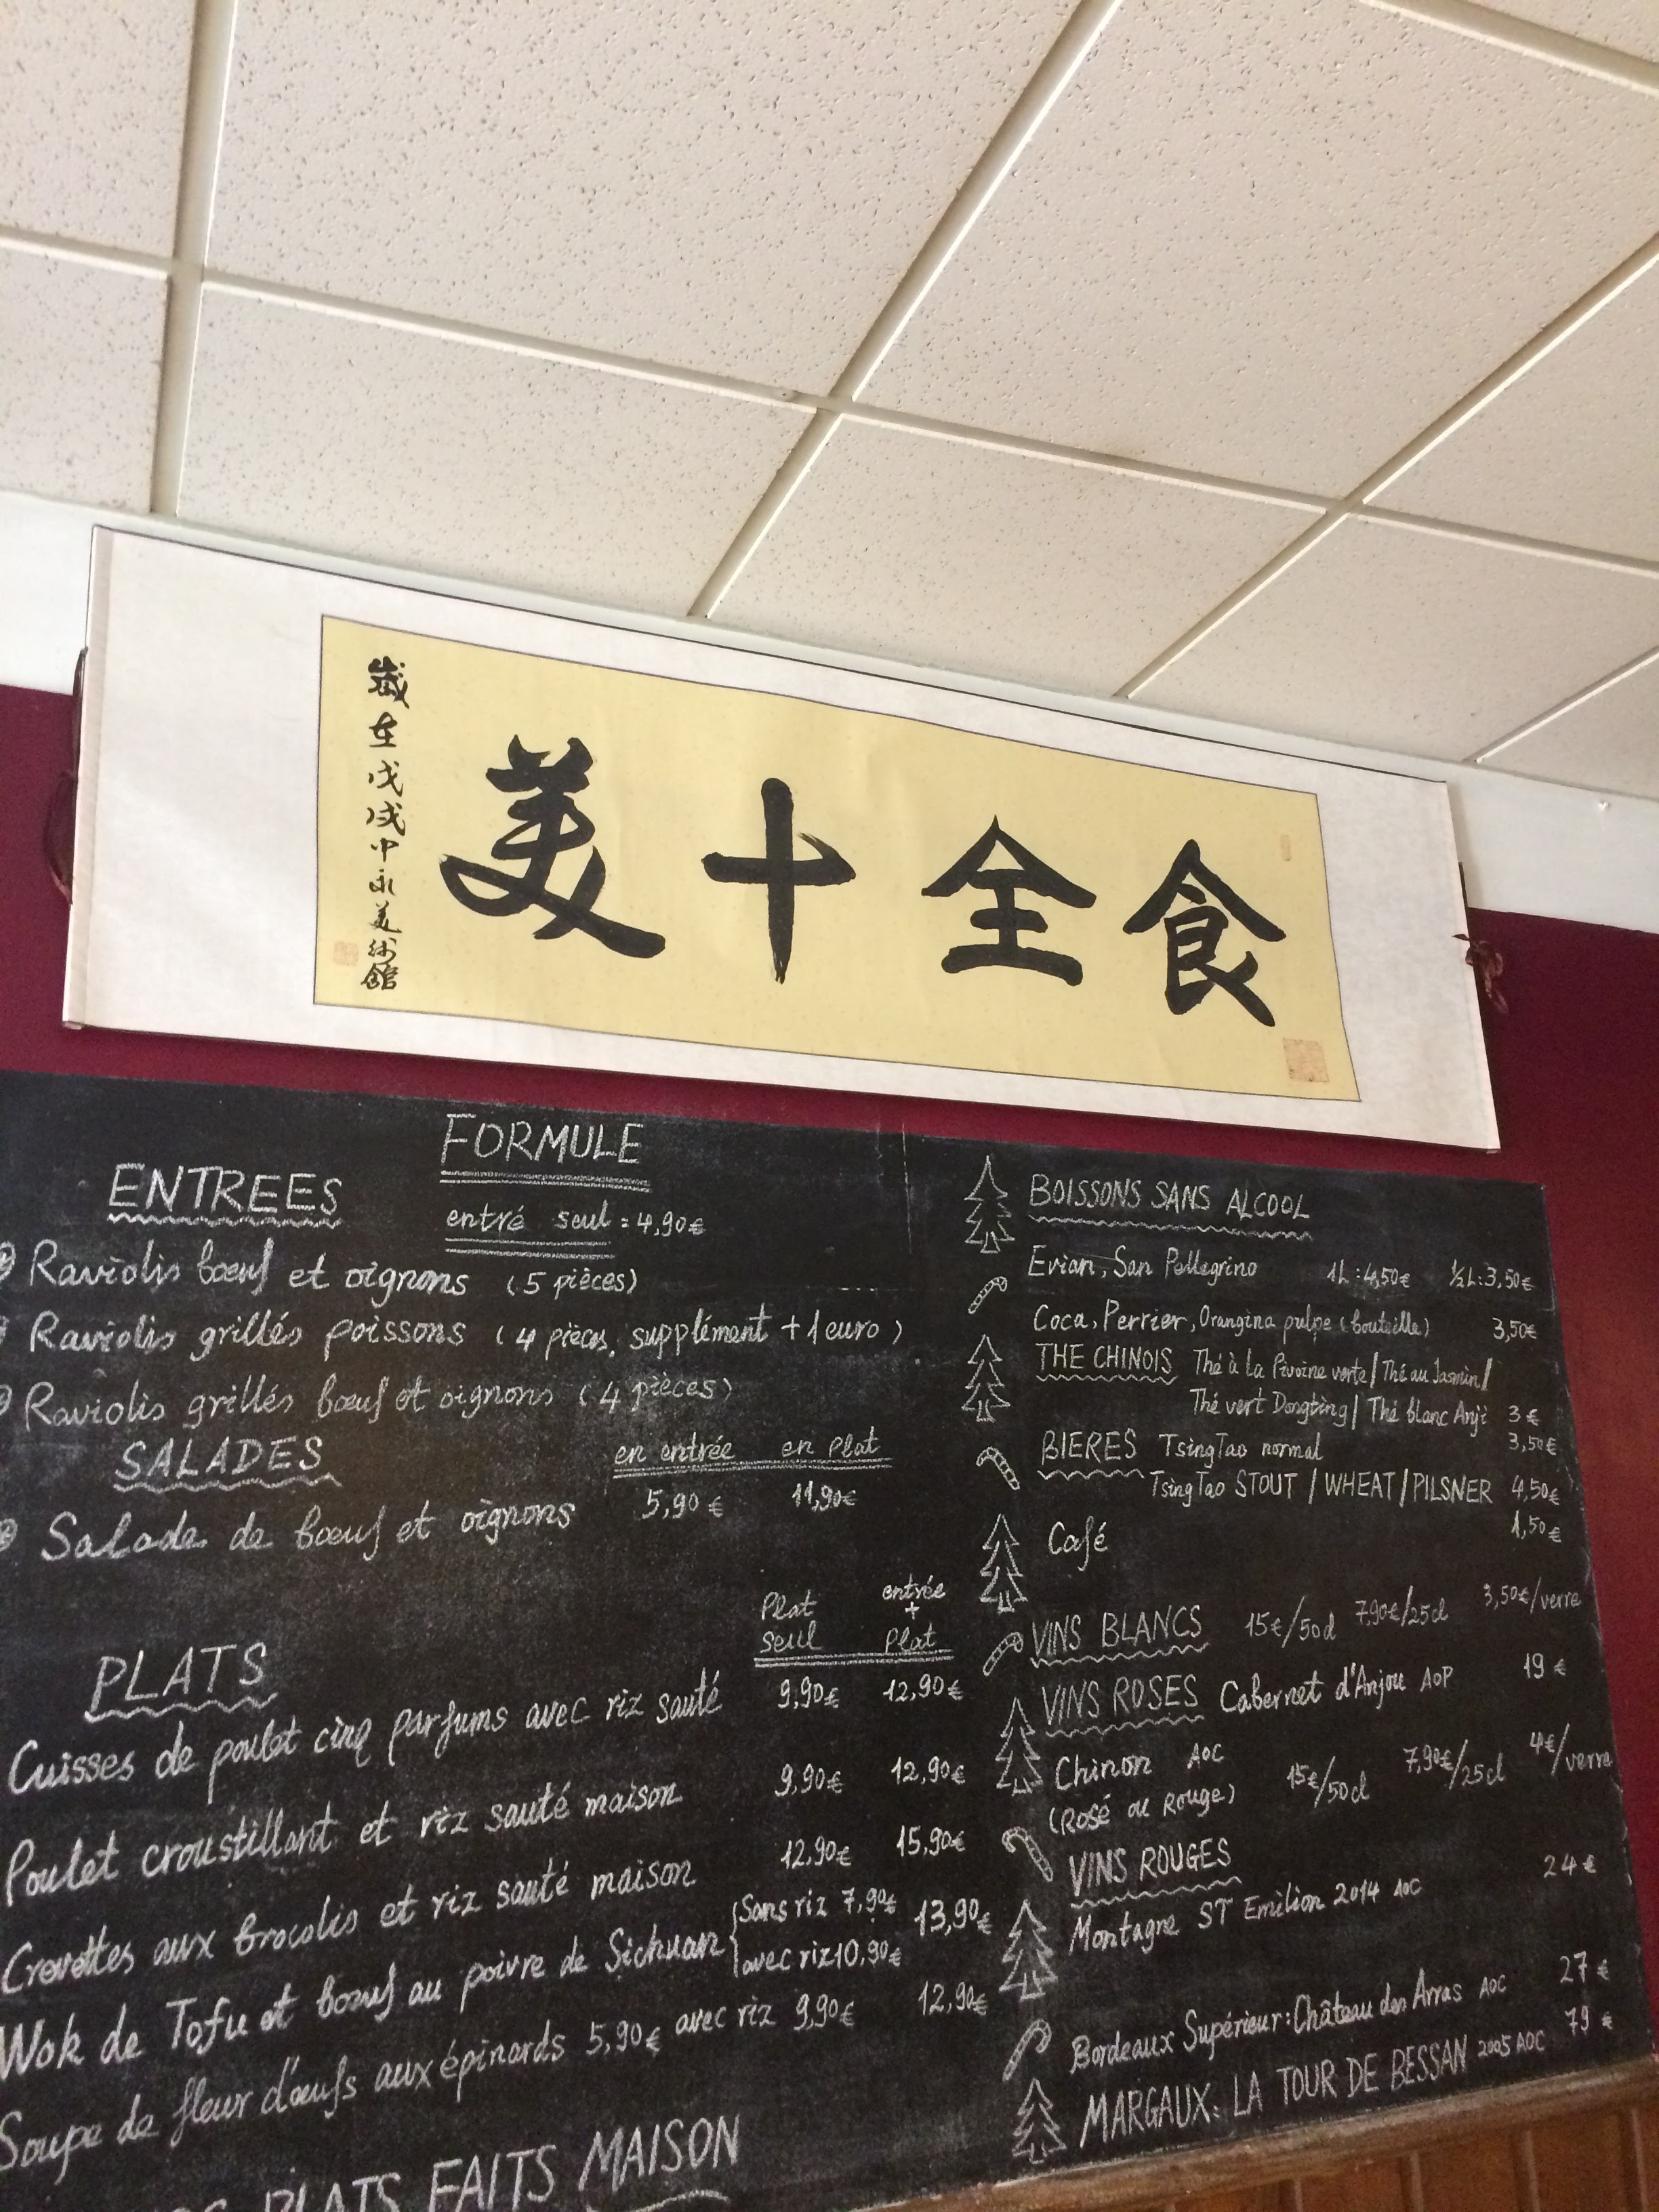 食全十美
歲在戊戌中永美術館
FORMULE
entré seul = 4,90€
ENTREES
Raviolis bœuf et oignons (5 pièces)
Raviolis grillés poissons (4 pièces, supplément +1euro)
Raviolis grillés bœuf et oignons (4 pièces)
SALADES en entrée en plat
Salade de bœuf et oignons 5,90€ 11,90€
PLATS Plat seul entrée + plat
Cuisses de poulet cinq parfums avec riz sauté 9,90€ 12,90€
Poulet croustillant et riz sauté maison 9,90€ 12,90€
Crevettes aux brocolis et riz sauté maison 12,90€ 15,90€
Wok de Tofu et bœuf au poivre de Sichuan {Sans riz 7,90€ avec riz 10,90€ 13,90€
Soupe de fleur d'œufs aux épinards 5,90€ avec riz 9,90€ 12,90€
PLATS FAITS MAISON
BOISSONS SANS ALCOOL
Evian, San Pellegrino 1L:4,50€ ½L:3,50€
Coca, Perrier, Orangina pulpe (bouteille) 3,50€
THE CHINOIS Thé à la Pivoine verte/Thé au Jasmin/
Thé vert Dongting/Thé blanc Anji 3€
BIERES TsingTao normal 3,50€
TsingTao STOUT / WHEAT / PILSNER 4,50€
Café 1,50€
VINS BLANCS 15€/50cl 7,90€/25cl 3,50€/verre
VINS ROSES Cabernet d'Anjou AOP 19€
Chinon AOC 15€/50cl 7,90€/25cl 4€/verre
(Rosé ou Rouge)
VINS ROUGES
Montagne ST Emilion 2014 AOC 24€
Bordeaux Supérieur: Château des Arras AOC 27€
MARGAUX: LA TOUR DE BESSAN 2005 AOC 79€